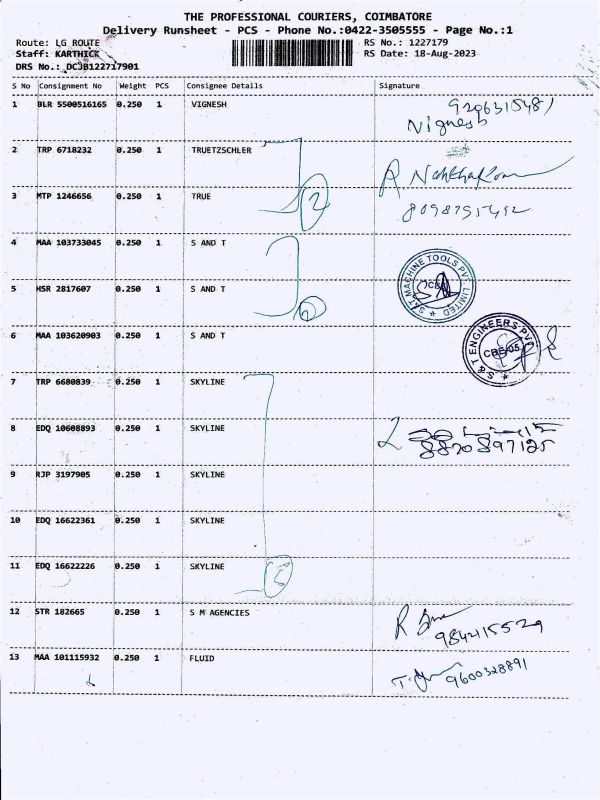 THE PROFESSIONAL COURIERS, COIMBATORE
Delivery Runsheet - PCS - Phone No.:0422-3505555 - Page No.:1
Route: LG ROUTE
RS No.: 1227179
Staff: KARTHICK
RS Date: 18-Aug-2023
DRS No.: DCJB122717901
S No Consignment No Weight PCS Consignee Details Signature
1 BLR 5500516165 0.250 1 VIGNESH
Vignesh
2 TRP 6718232 0.250 1 TRUETZSCHLER
3 MTP 1246656 0.250 1 TRUE
2
4 MAA 103733045 0.250 1 S AND T
S&T MACHINE TOOLS PVT. LIMITED
5 HSR 2817607 0.250 1 S AND T
6 MAA 103620903 0.250 1 S AND T
S & T ENGINEERS PVT
7 TRP 6680839 0.250 1 SKYLINE
8 EDQ 10608893 0.250 1 SKYLINE
8820897125
9 RJP 3197905 0.250 1 SKYLINE
10 EDQ 16622361 0.250 1 SKYLINE
11 EDQ 16622226 0.250 1 SKYLINE
12 STR 182665 0.250 1 S M AGENCIES
984215529
13 MAA 101115932 0.250 1 FLUID
9600328891